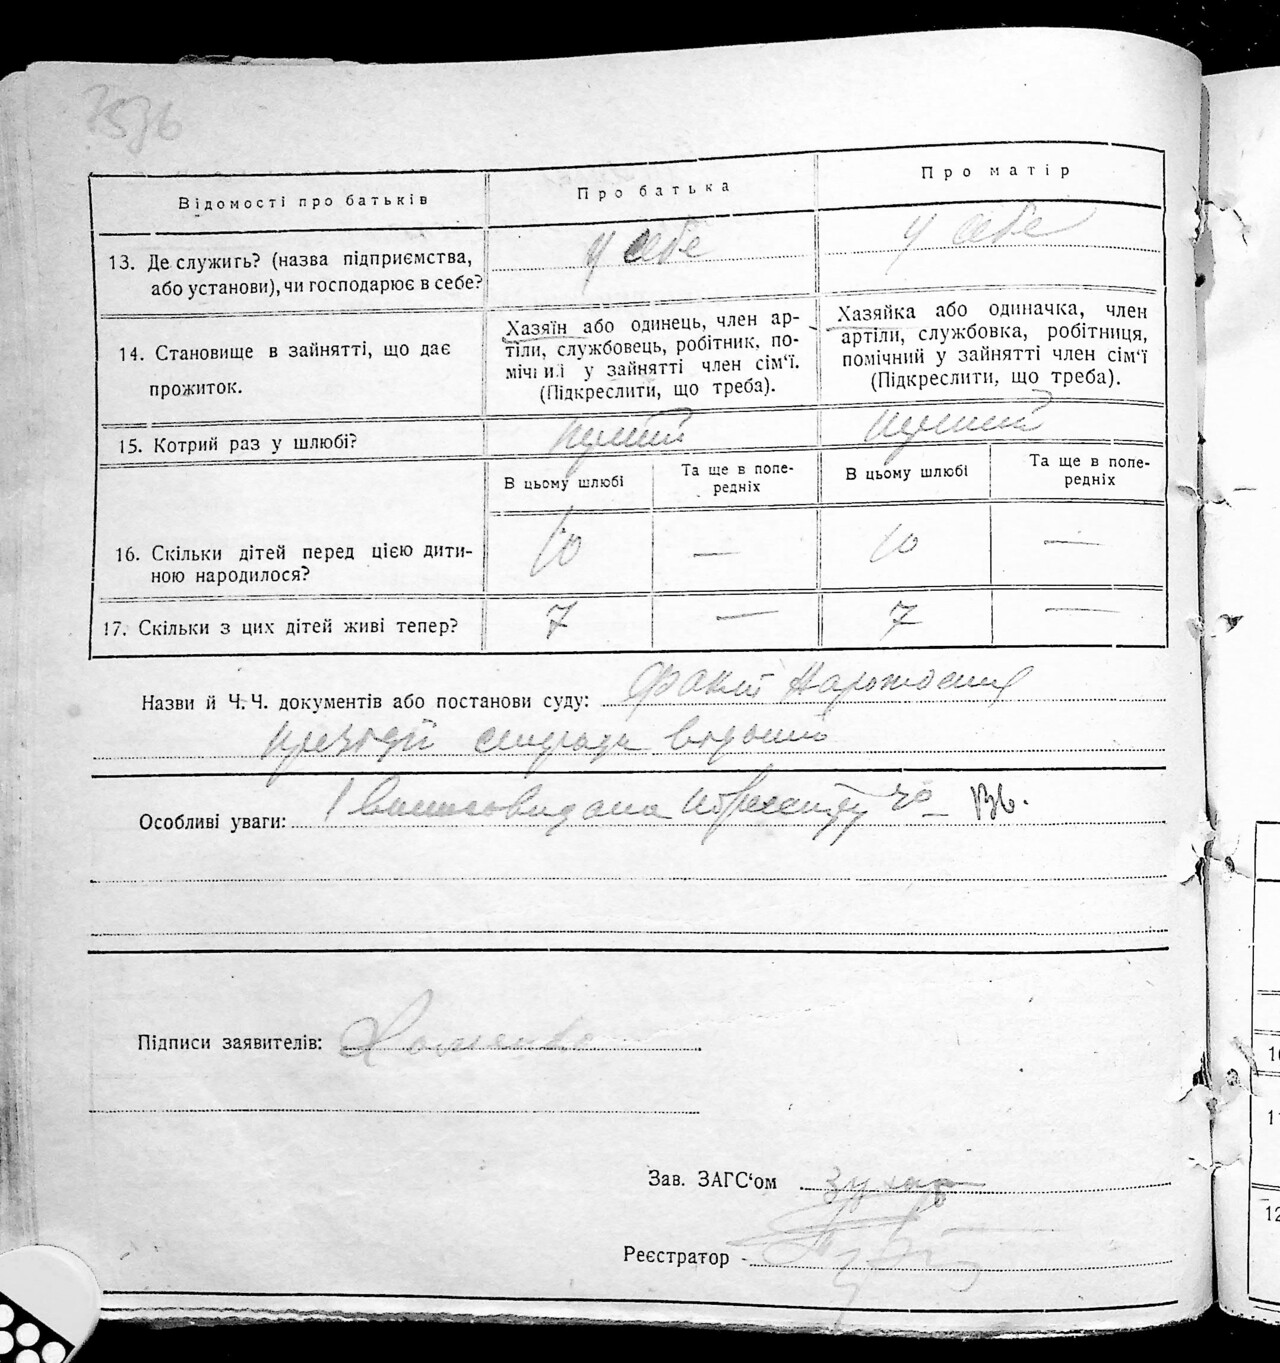 7536
Відомості про батьків
Про батька
Про матір
13. Де служить? (назва підприємства,
або установи), чи господарює в себе?
у себе
у себе
14. Становище в зайнятті, що дає
прожиток.
Хазяїн або одинець, член ар-
тілі, службовець, робітник, по-
мічний у зайнятті член сім'ї.
(Підкреслити, що треба).
Хазяйка або одиначка, член
артіли, службовка, робітниця,
помічний у зайнятті член сім'ї
(Підкреслити, що треба).
15. Котрий раз у шлюбі?
перший
перший
В цьому шлюбі
Та ще в попе-
редніх
В цьому шлюбі
Та ще в попе-
редніх
16. Скільки дітей перед цією дити-
ною народилося?
10 — 10 —
17. Скільки з цих дітей живі тепер?
7 — 7 —
Назви й Ч. Ч. документів або постанови суду: Факт
Особливі уваги:
Підписи заявителів: Хоменко
Зав. ЗАГС'ом
Реєстратор
10
11
12